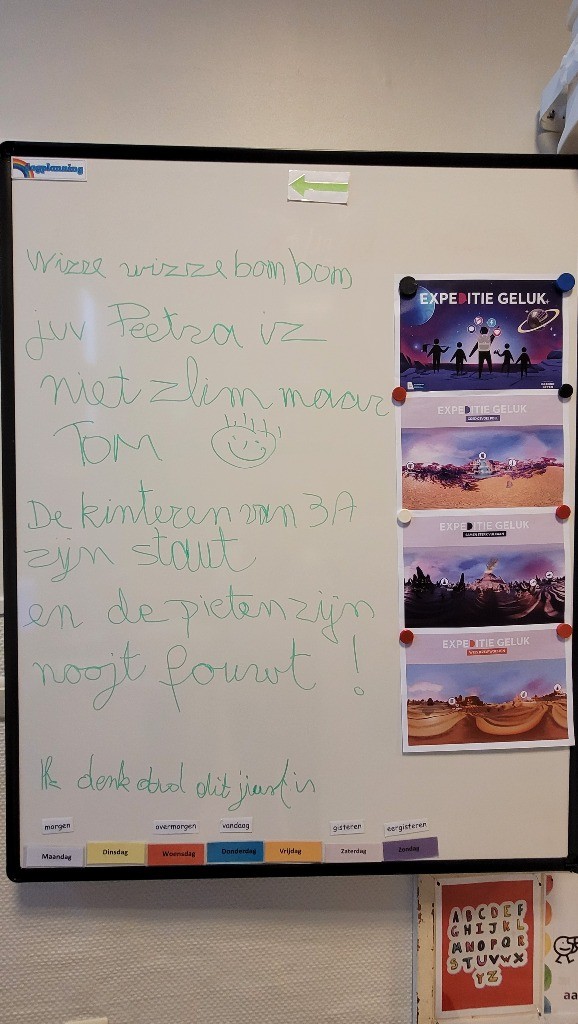 dagplanning
Wizze wizze bom bom
juv Peetra iz
niet zlim maar
TOM
De kinteren van 3A
zijn staut
en de pieten zijn
noojt fouwt !
Ik denk dad dit juist is
EXPEDITIE GELUK
EXPEDITIE GELUK
EXPEDITIE GELUK
EXPEDITIE GELUK
morgen overmorgen vandaag gisteren eergisteren
Maandag Dinsdag Woensdag Donderdag Vrijdag Zaterdag Zondag
ABCDEF
GHIJKL
MNOPQR
STUVWX
YZ
aa